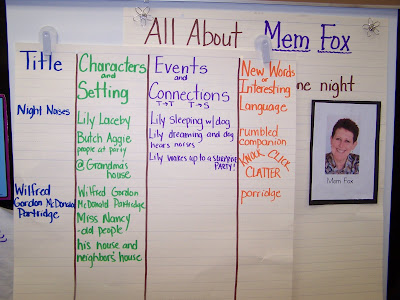 All About Mem Fox
Title
Characters
and
Setting
Events
and
Connections
T→T T→S
New Words
or
Interesting
Language
Night Noises
Lily Laceby
Butch Aggie
people at party
@Grandma's
house
Lily sleeping w/dog
Lily dreaming and dog
hears noises
Lily wakes up to a surprise
PARTY!
rumbled
companion
KNOCK CLICK
CLATTER
Wilfred
Gordon McDonald
Partridge
Wilfred Gordon
McDonald Partridge
Miss Nancy
-old people
his house and
neighbor's house
porridge
ne night
Mem Fox